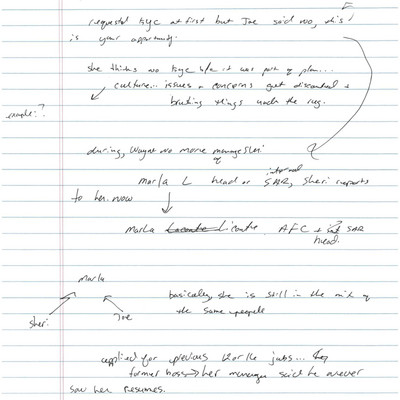 requested KYC at first but Joe said no, this
is your opportunity.
She thinks no KYC b/c it was part of plan...
culture... issues + concerns get discounted +
brushing things under the rug.
example?
during, Wayne no more manager
Marla L head of internal SAR, Sheri reports
to her now
Marla Licontre AFC + SAR
head.
Marla
Sheri
Joe
basically she is still in the mix of
the same people
applied for previous jobs...
former boss → her manager said he never
saw her resumes.